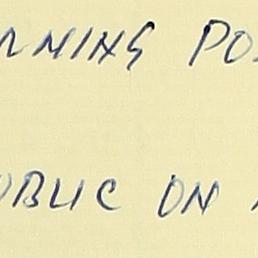 RNING PO
UBLIC ON